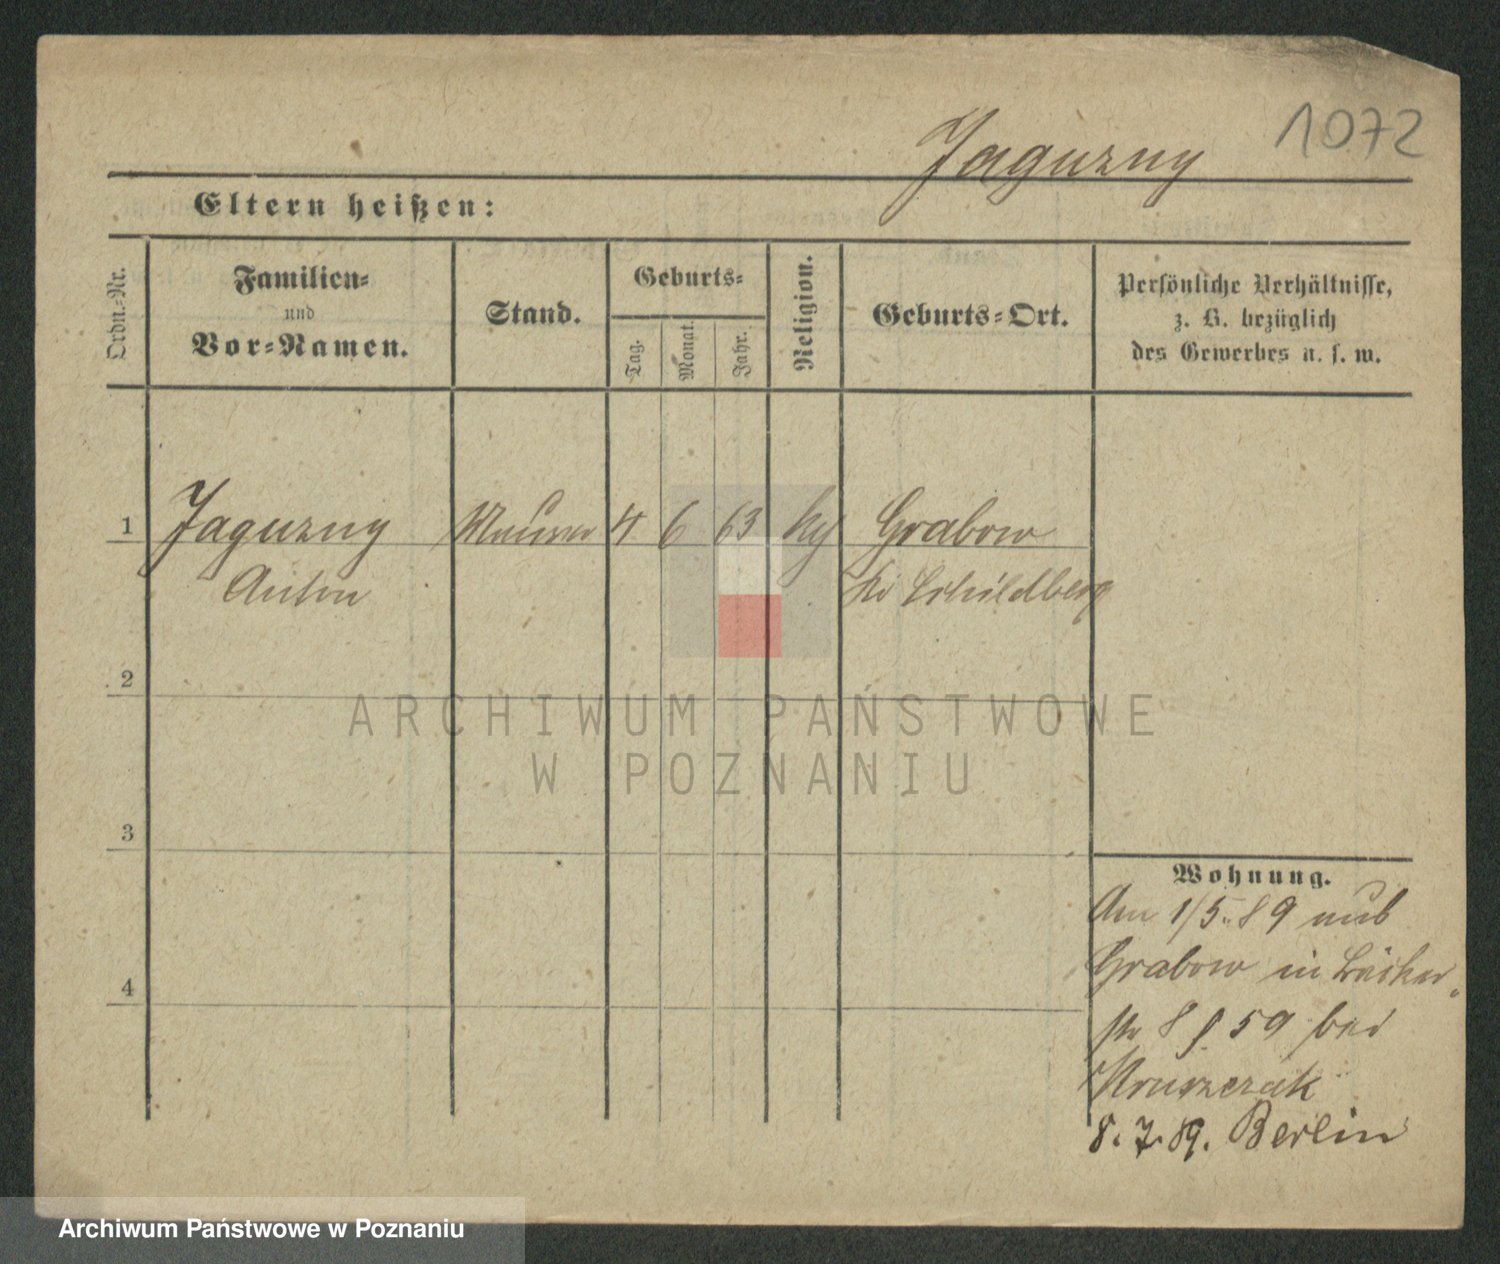 1072
Jaguzny
Eltern heißen:
Ordn.-Nr.
Familien-
und
Vor-Namen.
Stand.
Geburts-
Tag.
Monat.
Jahr.
Religion.
Geburts-Ort.
Persönliche Verhältnisse,
z. B. bezüglich
des Gewerbes u. s. w.
1 Jaguzny Maurer 4 6 63 Grabow
Anton Schildberg
2
3
4
Wohnung.
Am 1/5. 89 aus
Grabow in
str 8 59 bei
8. 7. 89. Berlin
ARCHIWUM PAŃSTWOWE
W POZNANIU
Archiwum Państwowe w Poznaniu